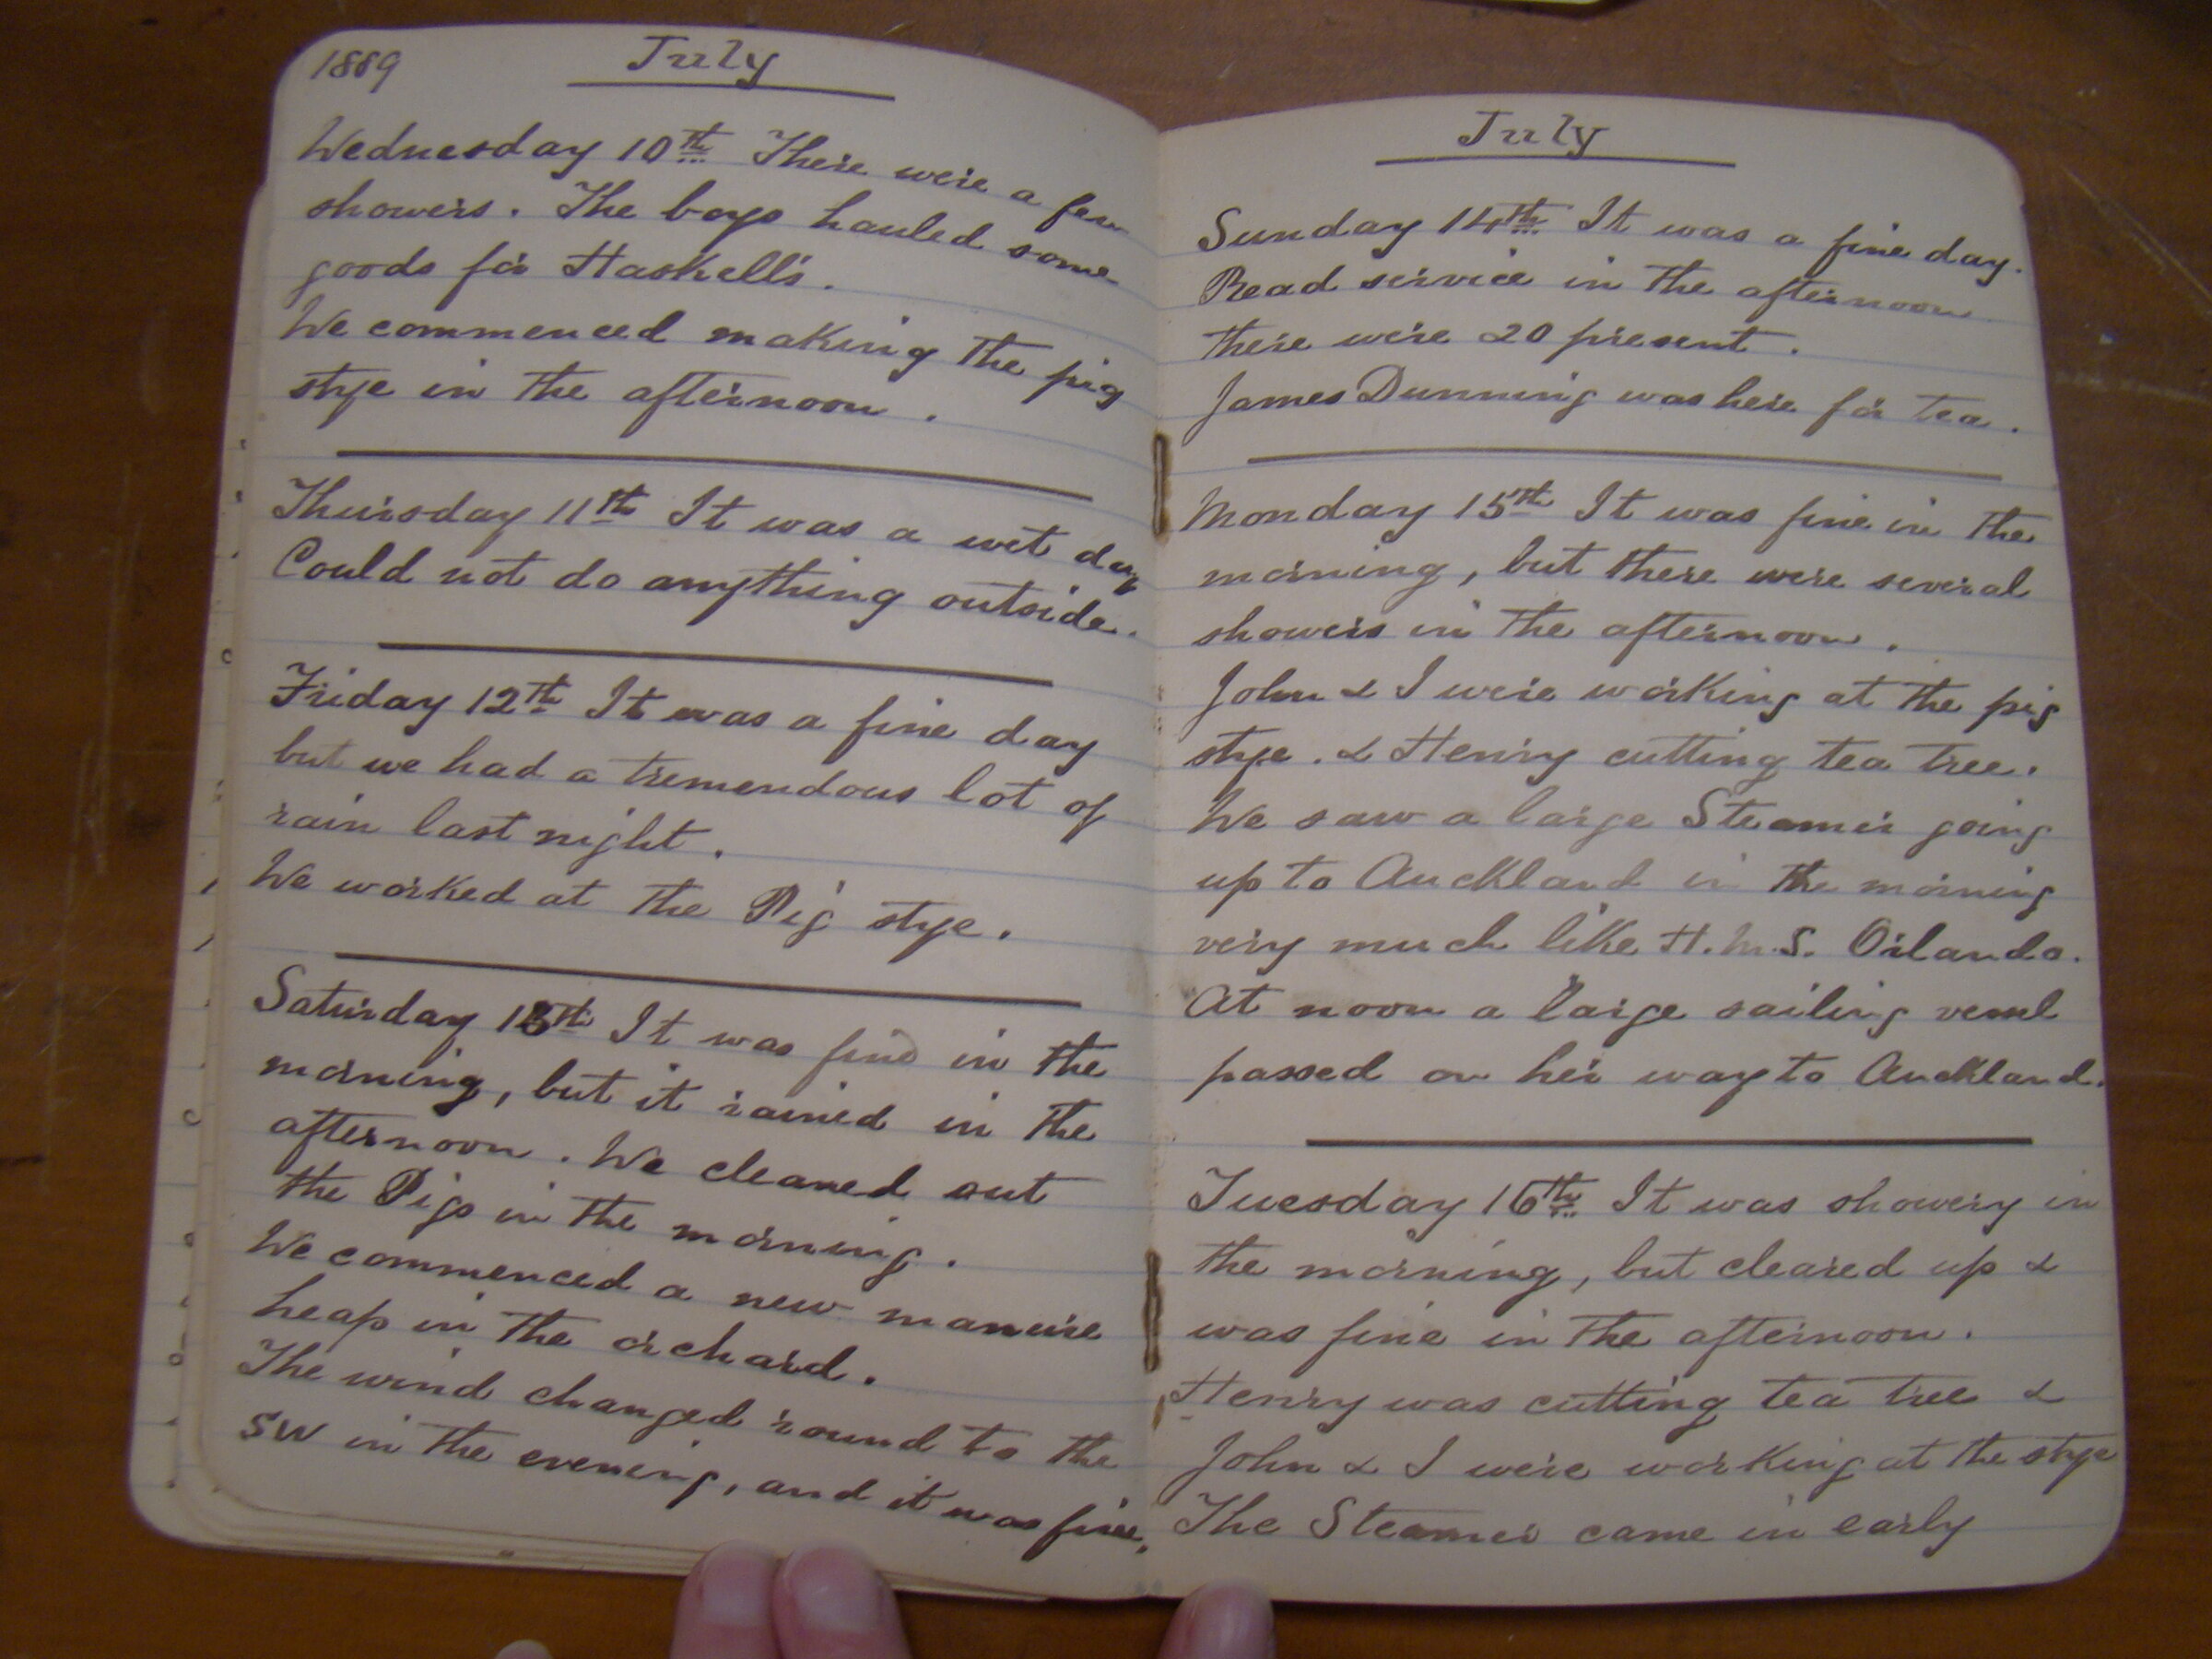 1889
July
Wednesday 10th There were a few
showers. The boys hauled some
goods for Haskells.
We commenced making the pig
stye in the afternoon.
Thursday 11th It was a wet day
Could not do anything outside.
Friday 12th It was a fine day
but we had a tremendous lot of
rain last night.
We worked at the Pig stye.
Saturday 13th It was fine in the
morning, but it rained in the
afternoon. We cleaned out
the Pigs in the morning.
We commenced a new manure
heap in the orchard.
The wind changed round to the
SW in the evening, and it was fine.
July
Sunday 14th It was a fine day.
Read service in the afternoon
there were 20 present.
James Dunning was here for tea.
Monday 15th It was fine in the
morning, but there were several
showers in the afternoon.
John & I were working at the pig
stye. & Henry cutting tea tree.
We saw a large Steamer going
up to Auckland in the morning
very much like H.M.S. Orlando.
At noon a large sailing vessel
passed on her way to Auckland.
Tuesday 16th It was showery in
the morning, but cleared up &
was fine in the afternoon.
Henry was cutting tea tree &
John & I were working at the stye
The Steamer came in early